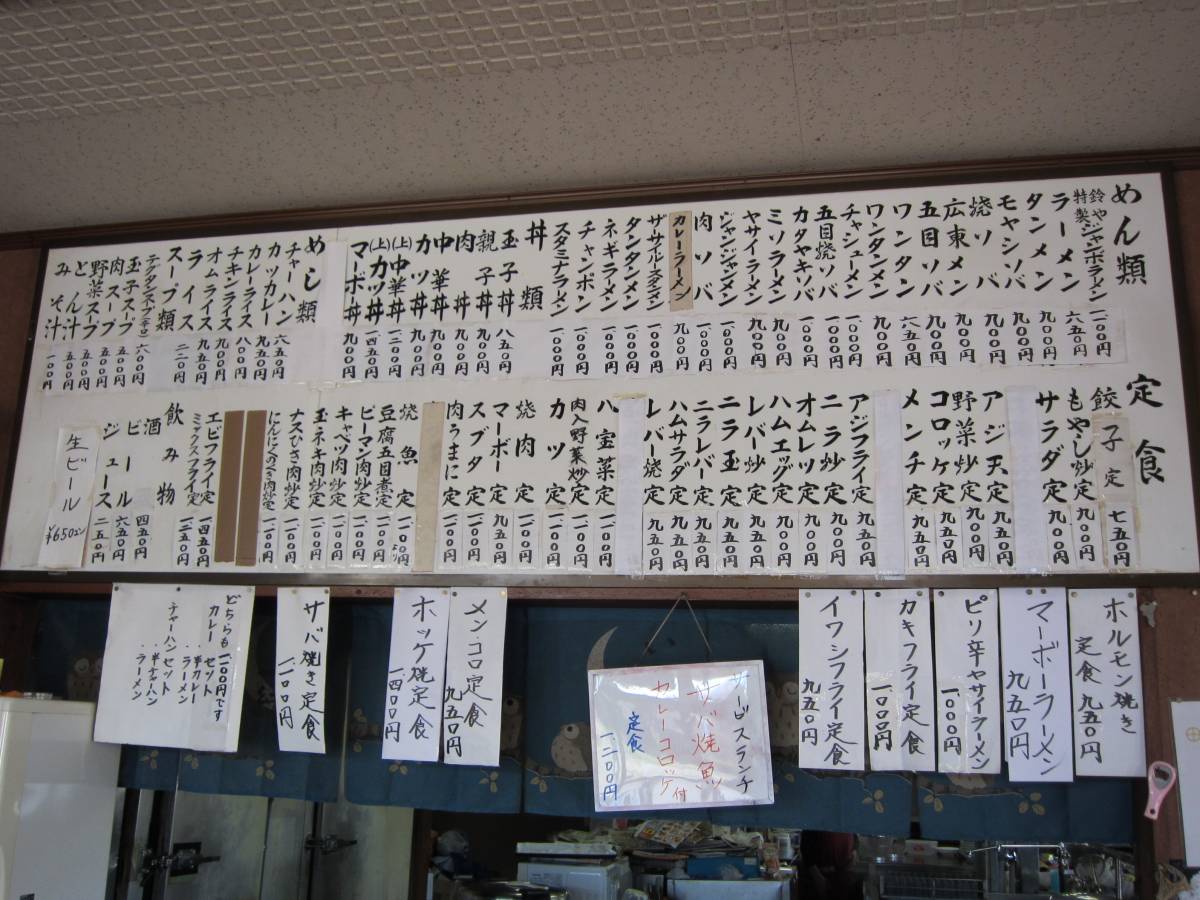 めん類
鈴や特製ジャンボラーメン 一、一〇〇円
ラーメン 六五〇円
タンメン 九〇〇円
モヤシソバ 九〇〇円
焼ソバ 九〇〇円
広東メン 九〇〇円
五目ソバ 九〇〇円
ワンタン 六五〇円
ワンタンメン 九〇〇円
チャシューメン 一、一〇〇円
五目焼ソバ
カタヤキソバ
ミソラーメン 九〇〇円
ヤサイラーメン 九〇〇円
ジャンジャンメン 一、〇〇〇円
肉ソバ 一、〇〇〇円
カレーラーメン 九〇〇円
ザサイルースメン 一、〇〇〇円
タンタンメン 一、〇〇〇円
ネギラーメン 一、〇〇〇円
チャンポン 一、〇〇〇円
スタミナラーメン 一、〇〇〇円
丼類
玉子丼 八五〇円
親子丼 九〇〇円
肉丼 九〇〇円
中華丼 九〇〇円
カツ丼
(上)中華丼
(上)カツ丼 一、四五〇円
マーボ丼 九〇〇円
めし類
チャーハン 六五〇円
カツカレー 九五〇円
カレーライス 八〇〇円
チキンライス
オムライス 九五〇円
ライス 二二〇円
スープ類
玉子スープ
肉スープ 五〇〇円
野菜スープ 五〇〇円
とん汁 五〇〇円
みそ汁 一〇〇円
定食
餃子定 七五〇円
もやし炒定 九〇〇円
サラダ定 九〇〇円
アジ天定 九五〇円
野菜炒定 九〇〇円
コロッケ定 九五〇円
メンチ定 九五〇円
アジフライ定 九五〇円
ニラ炒定
オムレツ定
ハムエッグ定
レバー炒定 九五〇円
ニラ玉定 九五〇円
ニラレバー定 九五〇円
ハムサラダ定 九五〇円
レバー焼定 九五〇円
八宝菜定 一、一〇〇円
肉入野菜炒定 一、一〇〇円
カツ定 一、一〇〇円
焼肉定 一、一〇〇円
マーボー定 九五〇円
スブタ定 一、一〇〇円
肉うまに定 一、一〇〇円
焼魚定
豆腐五目煮定 一、一〇〇円
ピーマン肉炒定 一、一〇〇円
キャベツ肉炒定 一、一〇〇円
玉ネギ肉炒定 一、一〇〇円
ナスひき肉炒定 一、一〇〇円
にんにくのくき肉炒定 一、一〇〇円
エビフライ定 一、四五〇円
ミックスフライ定 一、三五〇円
飲み物
酒 四五〇円
ビール 六五〇円
ジュース 二五〇円
生ビール ¥650円
ホルモン焼き定食 九五〇円
マーボーラーメン 九五〇円
ピリ辛ヤサイラーメン 一、〇〇〇円
カキフライ定食 一、一〇〇円
イワシフライ定食 九五〇円
サービスランチ
サバ焼魚
カレーコロッケ付
定食
一、二〇〇円
メン・コロ定食 九五〇円
ホッケ焼定食 一、四〇〇円
サバ焼き定食 一、一〇〇円
どちらも一、一〇〇円です
カレーセット
・半カレー
・ラーメン
チャーハンセット
・半チャーハン
・ラーメン